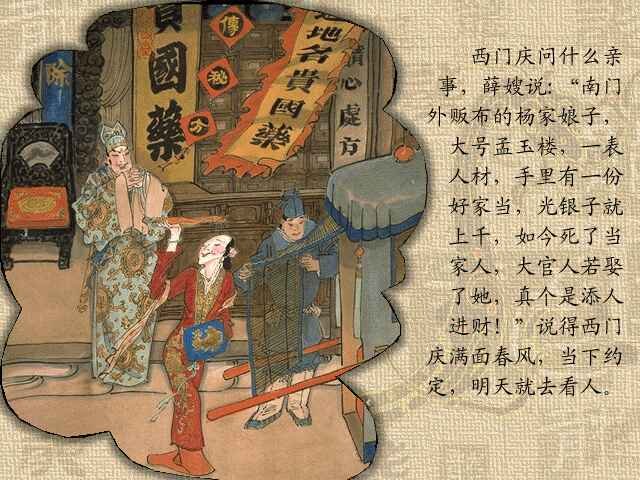 西门庆问什么亲
事，薛嫂说：“南门
外贩布的杨家娘子，
大号孟玉楼，一表
人材，手里有一份
好家当，光银子就
上千，如今死了当
家人，大官人若娶
了她，真个是添人
进财！”说得西门
庆满面春风，当下约
定，明天就去看人。
貴國藥
傳
秘
方
道地名貴國藥
精心處方
除